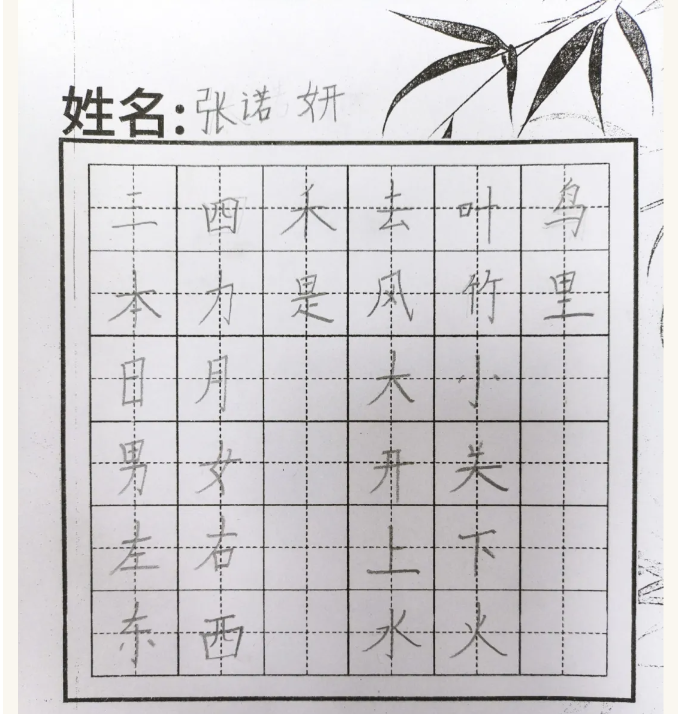 姓名:张诺妍
三四禾去叶鸟
本力是风竹里
日月大小
男女开关
左右上下
东西水火